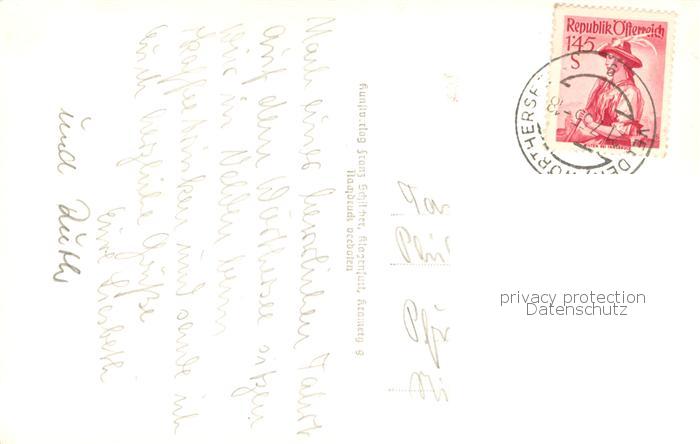 Nach einer herrlichen Fahrt
auf dem Wörthersee sitzen
wir in Velden beim
Kaffeetrinken und sende ich
Euch herzliche Grüße
Eure Liesbeth
und Ruth
Kunstverlag Franz Schilcher, Klagenfurt, Kramerg 9
Nachdruck verboten
Republik Österreich
1'45
S
VELDEN WÖRTHERSEE
privacy protection
Datenschutz